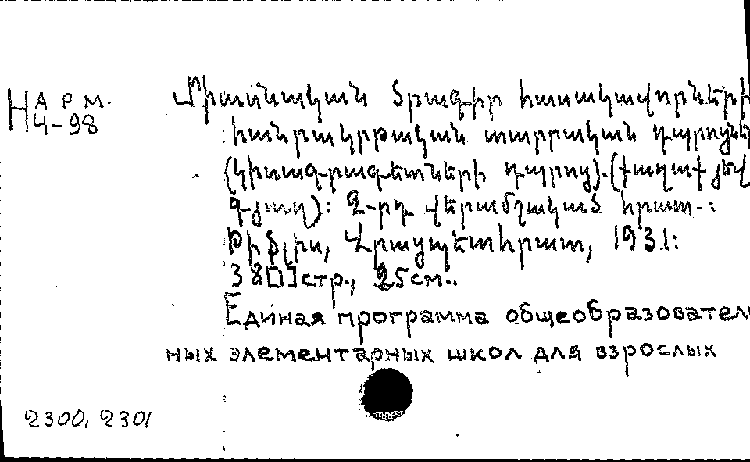 Н АРМ.
4-98
Միասնական ծրագիր հասակավորների
հանրակրթական տարրական դպրոցնե
(կիսագրագետների դպրոց). (քաղաք յեվ
գյուղ): 2-րդ վերամշակված հրատ.:
Թիֆլիս, Վրացպետհրատ, 1931:
38[] стр., 25 см..
Единая программа общеобразовател
ных элементарных школ для взрослых
2300, 2301